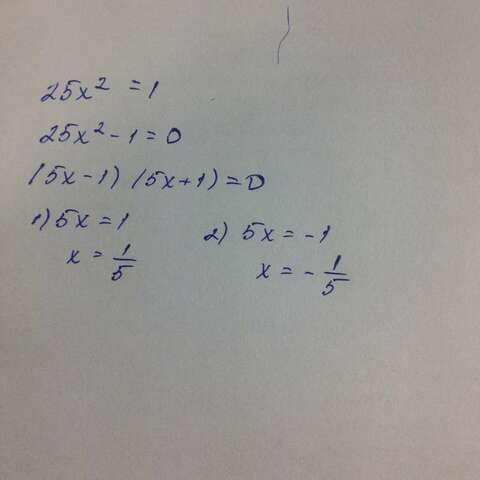 25x² = 1
25x² - 1 = 0
(5x - 1) (5x + 1) = 0
1) 5x = 1
x = 1/5
2) 5x = -1
x = - 1/5